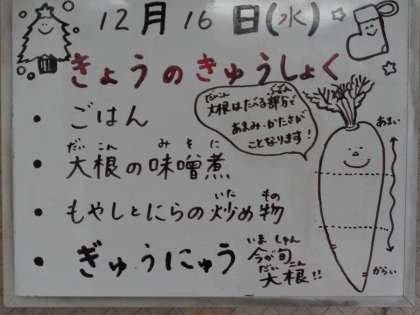 12月16日(水)
きょうのきゅうしょく
・ごはん
・大根の味噌煮
だいこん みそに
・もやしとにらの炒め物
いた もの
・ぎゅうにゅう
だいこん ぶぶん
大根はたべる部分で
あまみ・かたさが
ことなります!
あまい
からい
いま しゅん
今が旬
だいこん
大根!!